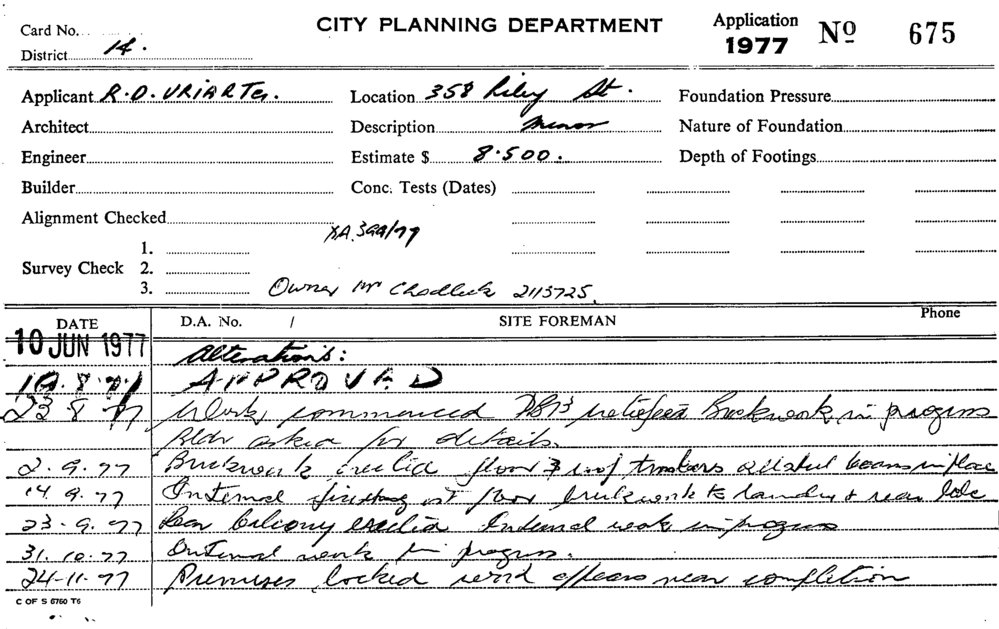 CITY PLANNING DEPARTMENT
Application 1977 Nº 675
Card No.
District 14.
Applicant R.D. URIARTE. Location 358 Riley St. Foundation Pressure
Architect Description Minor Nature of Foundation
Engineer Estimate $ 8.500. Depth of Footings
Builder Conc. Tests (Dates)
Alignment Checked
399/77
1.
Survey Check 2.
3. Owner Mr 2113725.
DATE D.A. No. / SITE FOREMAN Phone
10 JUN 1977 Alterations:
8 APPROVED
23 8 77 Work commenced Brickwork in progress
Bldr asked for details.
2.9.77 Brickwork floor & roof timbers beams in place
14 9.77 Internal floor brickwork to laundry & rear
23.9.77 Rear balcony Internal work in progress
31.10.77 Internal work in progress.
24-11-77 Premises locked work appears near completion
C OF S 6760 T6